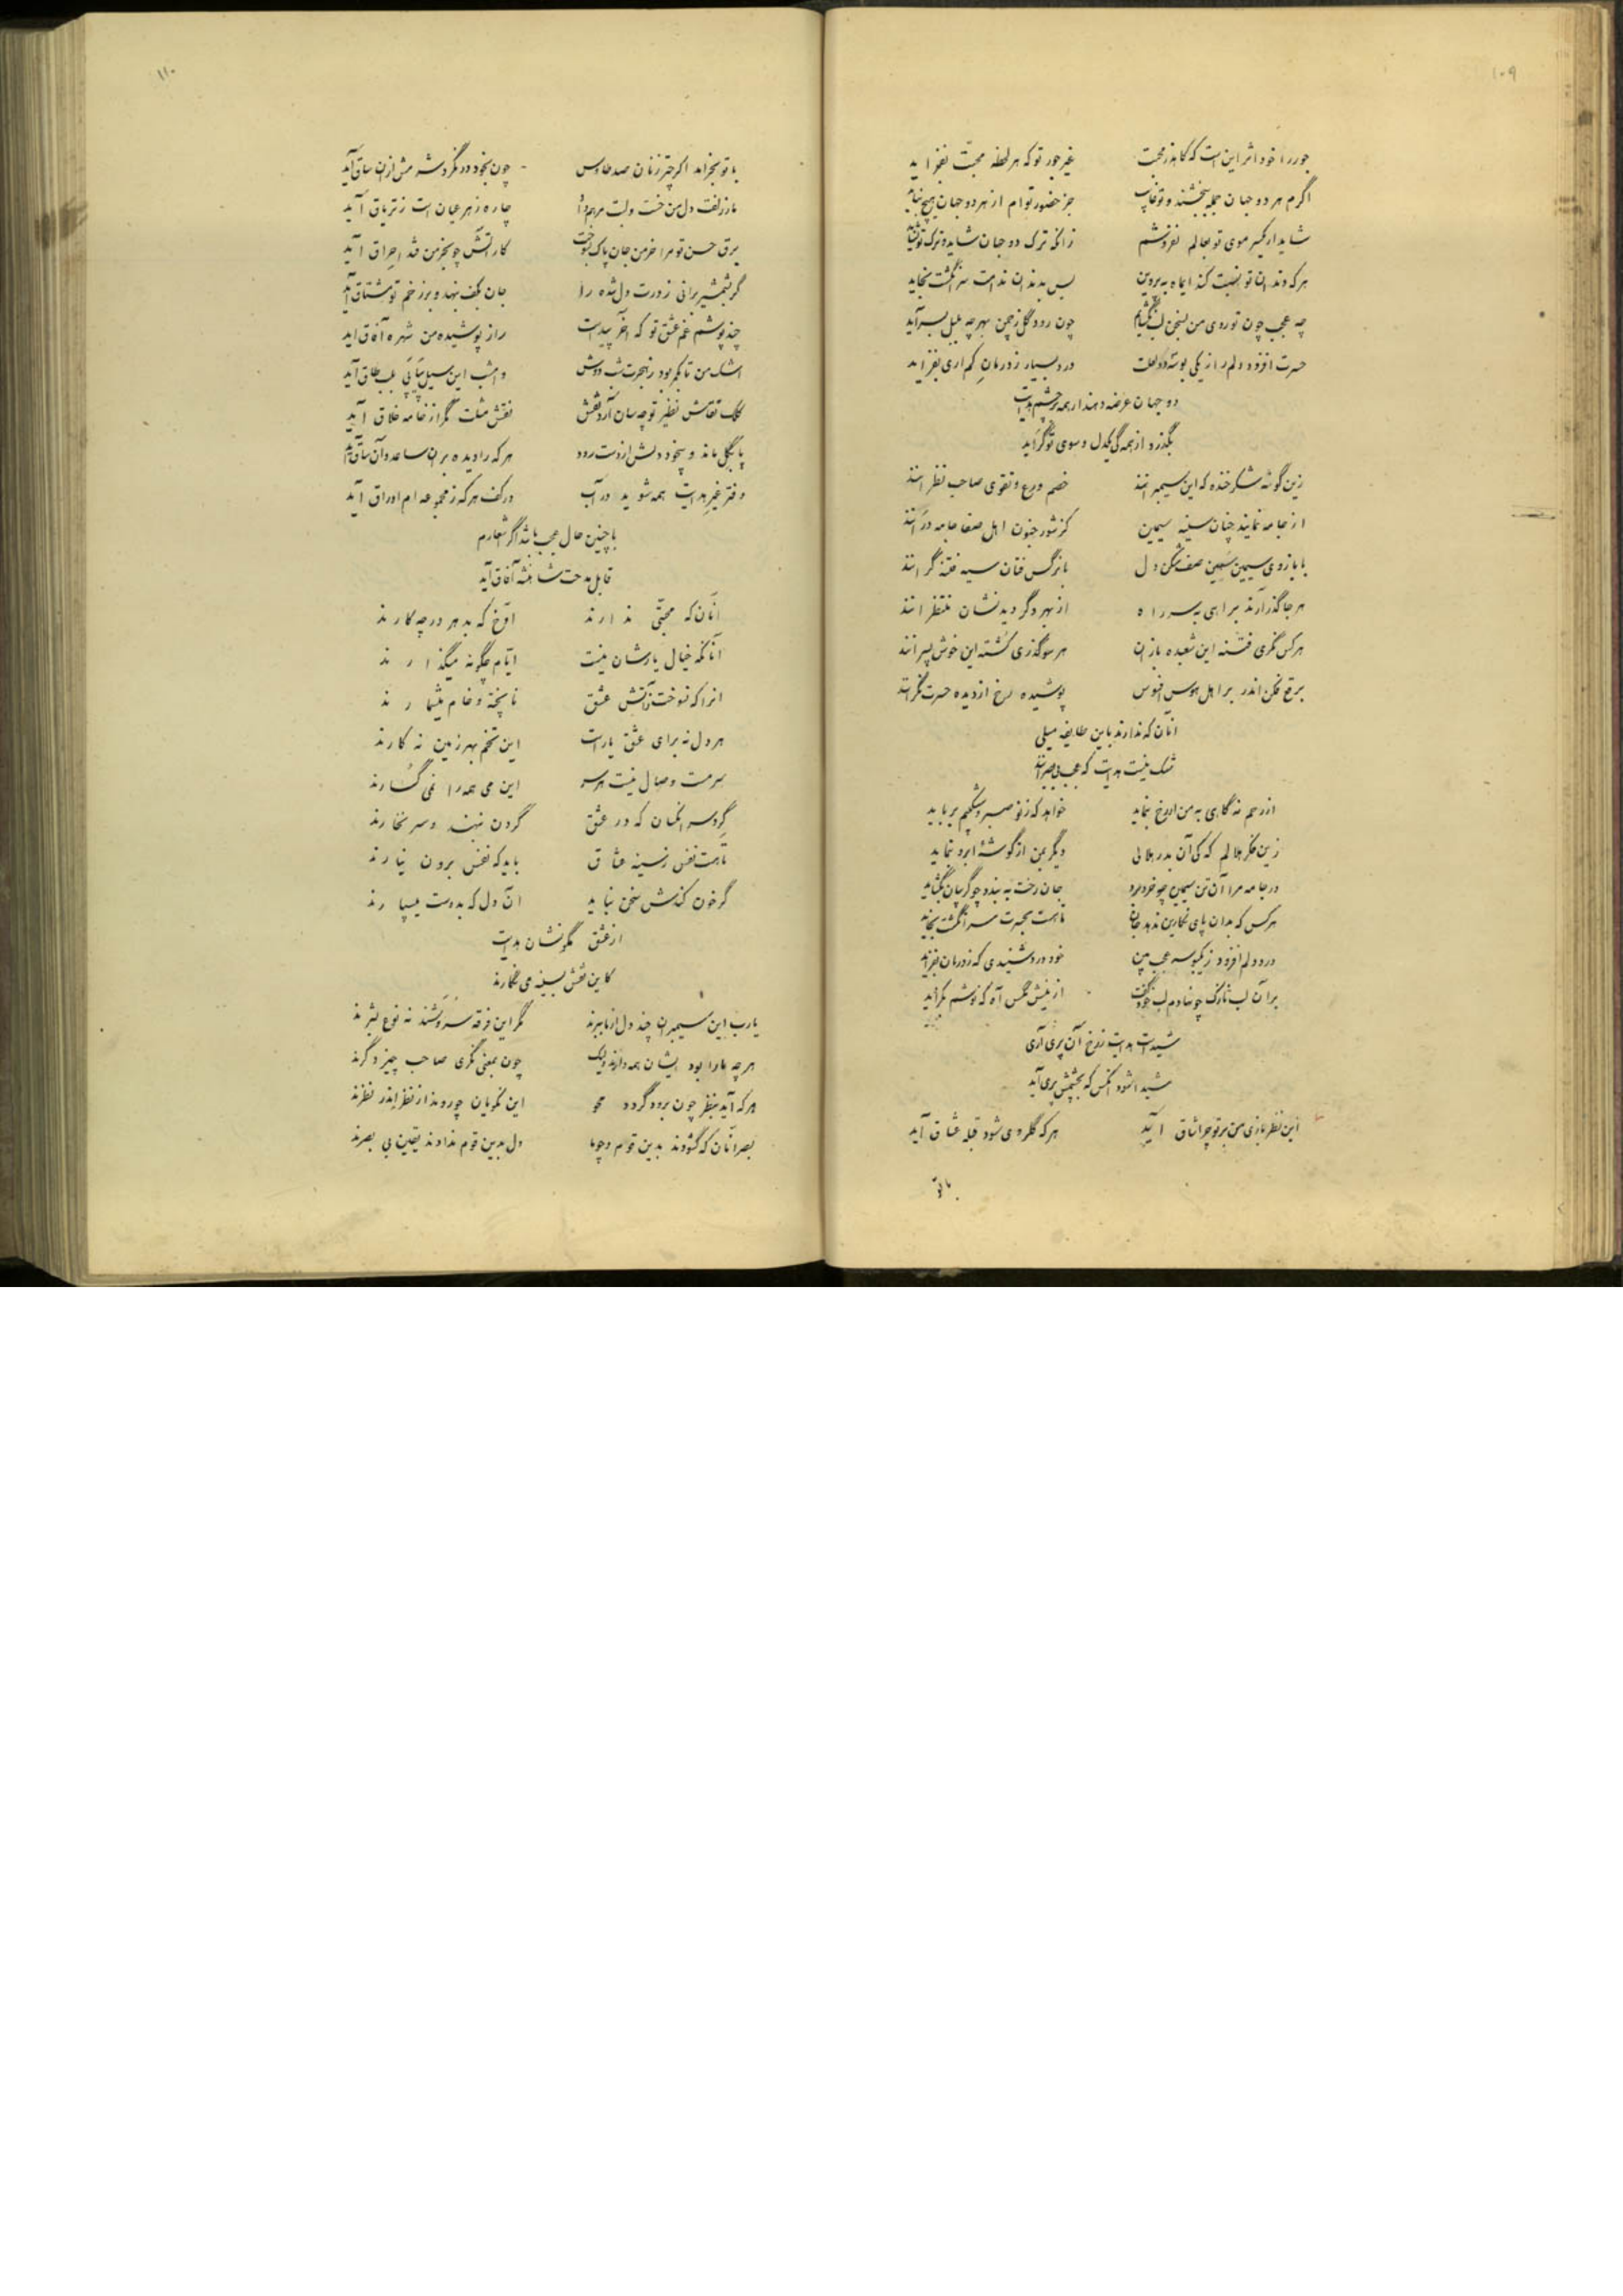 ۱۰۹
جور را خود اثر این است که کاهد ز محبت غیر جور تو که هر لحظه محبت بفزاید
اگرم هر دو جهان جمله ببخشند و تو غایب جز حضور توام از هر دو جهان هیچ نباید
شاید ار یکسر موی تو بعالم نفروشم زانکه ترک دو جهان شاید و ترک تو نشاید
هر که دندان تو نسبت کند ایماه به پروین بس بدندان ندامت سر انگشت بخاید
چه عجب چون تو روی من بسخن لب نگشایم چون رود گل ز چمن بهر چه بلبل بسراید
حسرت افزود دلم را ز یکی بوسه دو لعلت درد بسیار ز درمان کم آری بفزاید
دو جهان عرضه دهند ار همه بر چشم هدایت
بگذرد از همگی یکدل و سوی تو گراید
زین گونه شکر خنده که این سیمبرانند خصم ورع و تقوی صاحب نظرانند
از جامه نمایند چنان سینه سیمین کز شور جنون اهل صفا جامه درانند
با بازوی سیمین سمین صف شکن دل با نرگس فتان سیه فتنه گرانند
هر جا گذر آرند براهی به سر راه از بهر دگر دیدنشان منتظرانند
هر کس نگری فتنه این شعبده بازان هر سو گذری کشته این خوش پسرانند
برقع فکن اندر بر اهل هوس افسوس پوشیده رخ از دیده حسرت نگرانند
آنان که ندارند باین طایفه میلی
شک نیست هدایت که عجب بی بصرانند
از رحم نه گاهی به من ار رخ بنماید خواهد که ز نو صبر و شکیبم برباید
زین فکر هلالم که کی آن بدر هلالی دیگر بمن از گوشهٔ ابرو بنماید
در جامه مرا آن تن سیمین چو خرد برد جان رخت به بندد چو گریبان بگشاید
هر کس که بدان پای نگارین ندهد جان تا هست بحسرت سر انگشت بخاید
درد دلم افزود ز یکبوسه عجب بین خود درد شنیدی که ز درمان بفزاید
بر آن لب نازک چو نهادم لب خود گفت از نیش مگس آه که نوشم بگزاید
شیداست هدایت ز رخ آن پری آری
شیدا شود آنکس که بچشمش پری آید
این نظر بازی من بر تو چرا شاق آید هر که گلروی شود قبله عشاق آید
با تو
۱۱۰
با تو بخرامد اگر چتر زنان صد طاوس چون بخود در نگرد شرمش از آن ساق آید
مار زلفت دل من خست و لبت مرهم داد چاره زهر عیان است ز تریاق آید
برق حسن تو مرا خرمن جان پاک بسوخت کار آتش چو بخرمن فتد احراق آید
گر بشمشیر برانی ز درت دل شده را جان بکف بنهد و بر زخم تو مشتاق آید
چند پوشم غم عشق تو که آخر پیداست راز پوشیده من شهره آفاق آید
اشک من تا بکمر بود ز هجرت شب دوش و امشب این سیل پیاپی بلب طاق آید
کلک نقاش نظیر تو چه سان آرد نقش نقش مثلت مگر از خامه خلاق آید
پا بگل ماند و بیخود دلش از دست رود هر که را دیده بر آن ساعد و آن ساق آید
دفتر غیر هدایت همه شوید در آب در کف هر که ز مجموعه ام اوراق آید
با چنین حال عجب باشد اگر اشعارم
قابل مدحت شاهنشه آفاق آید
آنان که محبتی ندارند آوخ که بدهر در چه کارند
آنانکه خیال یارشان نیست ایام چگونه میگذارند
آنرا که نسوخت ز آتش عشق نا پخته و خام میشمارند
هر دل نه برای عشق یار است این تخم بهر زمین نه کارند
سرمست وصال نیست هر سر این می همه را نمی گسارند
گرد سر آنکسان که در عشق گردن بنهند و سر نخارند
تا هست نفس ز سینه عشاق باید که نفس برون نیارند
گر خون کندش سخن نباید آن دل که بدوست میسپارند
از عشق مگو نشان هدایت
کاین نقش بسینه می نگارند
یارب این سیمبران چند دل از ما ببرند مگر این فرقه سروشند نه نوع بشرند
هر چه ما را بود ایشان همه دارند ولیک چون بمعنی نگری صاحب چیز دگرند
هر که آید بنظر چون برود گردد محو این نکویان چو روند از نظر اندر نظرند
بصر آنان که گشودند بدین قوم و چو ما دل بدین قوم ندادند یقین بی بصرند